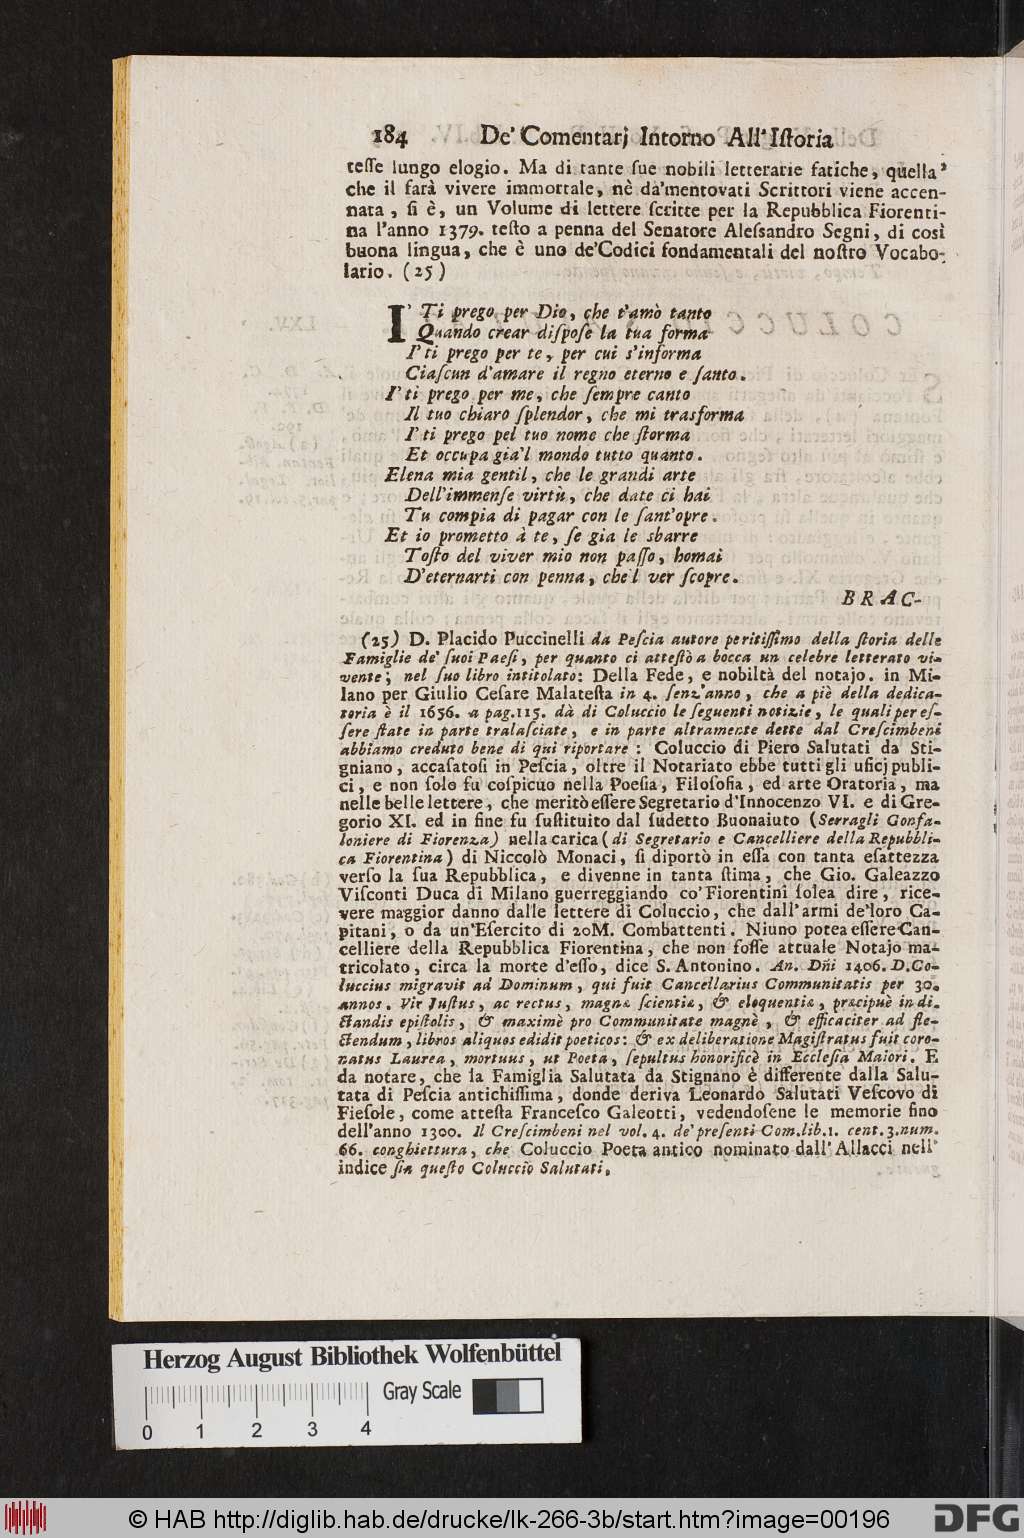 184 De' Comentarj Intorno All' Iſtoria
teſſe lungo elogio. Ma di tante ſue nobili letterarie fatiche, quella
che il farà vivere immortale, nè da'mentovati Scrittori viene accen-
nata, ſi è, un Volume di lettere ſcritte per la Repubblica Fiorenti-
na l'anno 1379. teſto a penna del Senatore Aleſsandro Segni, di così
buona lingua, che è uno de'Codici fondamentali del noſtro Vocabo-
lario. (25)
I' Ti prego per Dio, che t'amò tanto
Quando crear diſpoſe la tua forma
I' ti prego per te, per cui s'informa
Ciaſcun d'amare il regno eterno e ſanto.
I' ti prego per me, che ſempre canto
Il tuo chiaro ſplendor, che mi trasforma
I' ti prego pel tuo nome che ſtorma
Et occupa gia'l mondo tutto quanto.
Elena mia gentil, che le grandi arte
Dell'immenſe virtù, che date ci hai
Tu compia di pagar con le ſant'opre.
Et io prometto à te, ſe gia le sbarre
Toſto del viver mio non paſſo, homai
D'eternarti con penna, che'l ver ſcopre.
BRAC-
(25) D. Placido Puccinelli da Peſcia autore peritiſſimo della ſtoria delle
Famiglie de' ſuoi Paeſi, per quanto ci atteſtò a bocca un celebre letterato vi-
vente; nel ſuo libro intitolato: Della Fede, e nobiltà del notajo. in Mi-
lano per Giulio Ceſare Malateſta in 4. ſenz'anno, che a piè della dedica-
toria è il 1656. a pag.115. dà di Coluccio le ſeguenti notizie, le quali per eſ-
ſere ſtate in parte tralaſciate, e in parte altramente dette dal Creſcimbeni
abbiamo creduto bene di qui riportare: Coluccio di Piero Salutati da Sti-
gniano, accaſatoſi in Peſcia, oltre il Notariato ebbe tutti gli uficj publi-
ci, e non ſolo fu coſpicuo nella Poeſia, Filoſofia, ed arte Oratoria, ma
nelle belle lettere, che meritò eſſere Segretario d'Innocenzo VI. e di Gre-
gorio XI. ed in fine fu ſuſtituito dal ſudetto Buonaiuto (Serragli Gonfa-
loniere di Fiorenza) nella carica (di Segretario e Cancelliere della Repubbli-
ca Fiorentina) di Niccolò Monaci, ſi diportò in eſſa con tanta eſattezza
verſo la ſua Repubblica, e divenne in tanta ſtima, che Gio. Galeazzo
Viſconti Duca di Milano guerreggiando co' Fiorentini ſolea dire, rice-
vere maggior danno dalle lettere di Coluccio, che dall'armi de'loro Ca-
pitani, o da un'Eſercito di 20M. Combattenti. Niuno potea eſſere Can-
celliere della Repubblica Fiorentina, che non foſſe attuale Notajo ma-
tricolato, circa la morte d'eſſo, dice S. Antonino. An. Dñi 1406. D.Co-
luccius migravit ad Dominum, qui fuit Cancellarius Communitatis per 30.
annos. Vir Juſtus, ac rectus, magnæ ſcientiæ, & eloquentiæ, præcipuè in di-
ctandis epiſtolis, & maximè pro Communitate magnè, & efficaciter ad fle-
ctendum, libros aliquos edidit poeticos: & ex deliberatione Magiſtratus fuit coro-
natus Laurea, mortuus, ut Poeta, ſepultus honorificè in Eccleſia Maiori. E
da notare, che la Famiglia Salutata da Stignano è differente dalla Salu-
tata di Peſcia antichiſſima, donde deriva Leonardo Salutati Veſcovo di
Fieſole, come atteſta Franceſco Galeotti, vedendoſene le memorie fino
dell'anno 1300. Il Creſcimbeni nel vol. 4. de' preſenti Com.lib.1. cent.3.num.
66. conghiettura, che Coluccio Poeta antico nominato dall' Allacci nell'
indice ſia queſto Coluccio Salutati.
Herzog August Bibliothek Wolfenbüttel
Gray Scale
0 1 2 3 4
© HAB http://diglib.hab.de/drucke/lk-266-3b/start.htm?image=00196
DFG